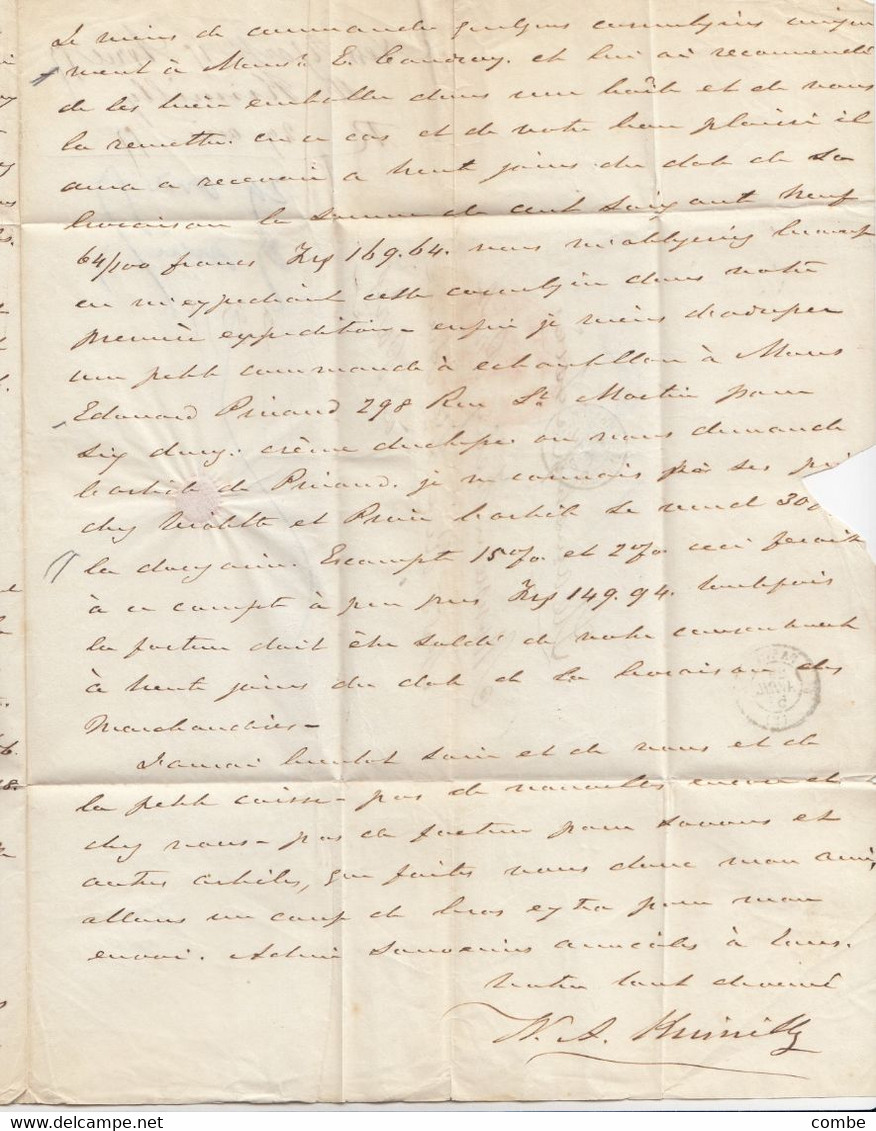 Je viens de commander quelques
ment à Mons. E. Caudray. et lui ai recommendé
de les bien emballer dans une boîte et de vous
la remettre. en ce cas et de votre bon plaisir il
aura a recevoir a trente jours du date de sa
livraison la somme de cent soixante neuf
64/100 francs Frs 169.64. vous m'obligeriez beaucoup
en m'expediant cette dans votre
première expedition - enfin je viens d'adresser
une petite commande à echantillon à Mons
Edouard Pinaud 298 Rue St. Martin pour
six douz. crème duchesse on nous demande
l'article de Pinaud. je ne connais pas ses pri
chez Violette et l'article se vend 30
la douzaine. Escompte 15% et 2% ceci ferait
à ce compte à peu pres Frs 149.94. toutefois
la facture doit être soldé de votre consentement
à trente jours du date de la livraison des
Marchandises -
J'aurai bientot soin et de vous et de
la petite caisse - pas de nouvelles encore de
chez vous - pas de facture pour savons et
autres articles, que faites vous donc mon ami,
allons un coup de bras extra pour mon
envoi. Adieu souvenirs amicals à tous.
Votre tout devoué
N. A.
combe